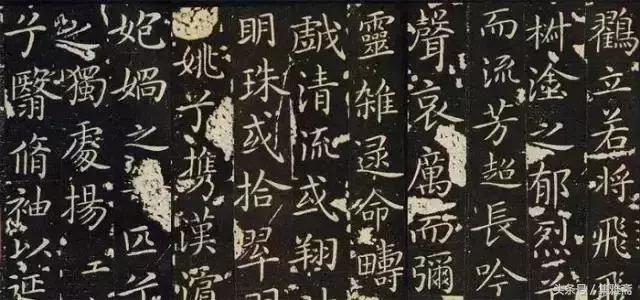 鸖立若将飛
椒塗之郁烈
而流芳超長吟
聲哀厲而彌
靈雜遝命疇
戯清流或翔
明珠或拾翠
姚兮携漢濱
媧之匹兮
之獨處揚
兮翳脩袖以延
头条号 / 集雅斋